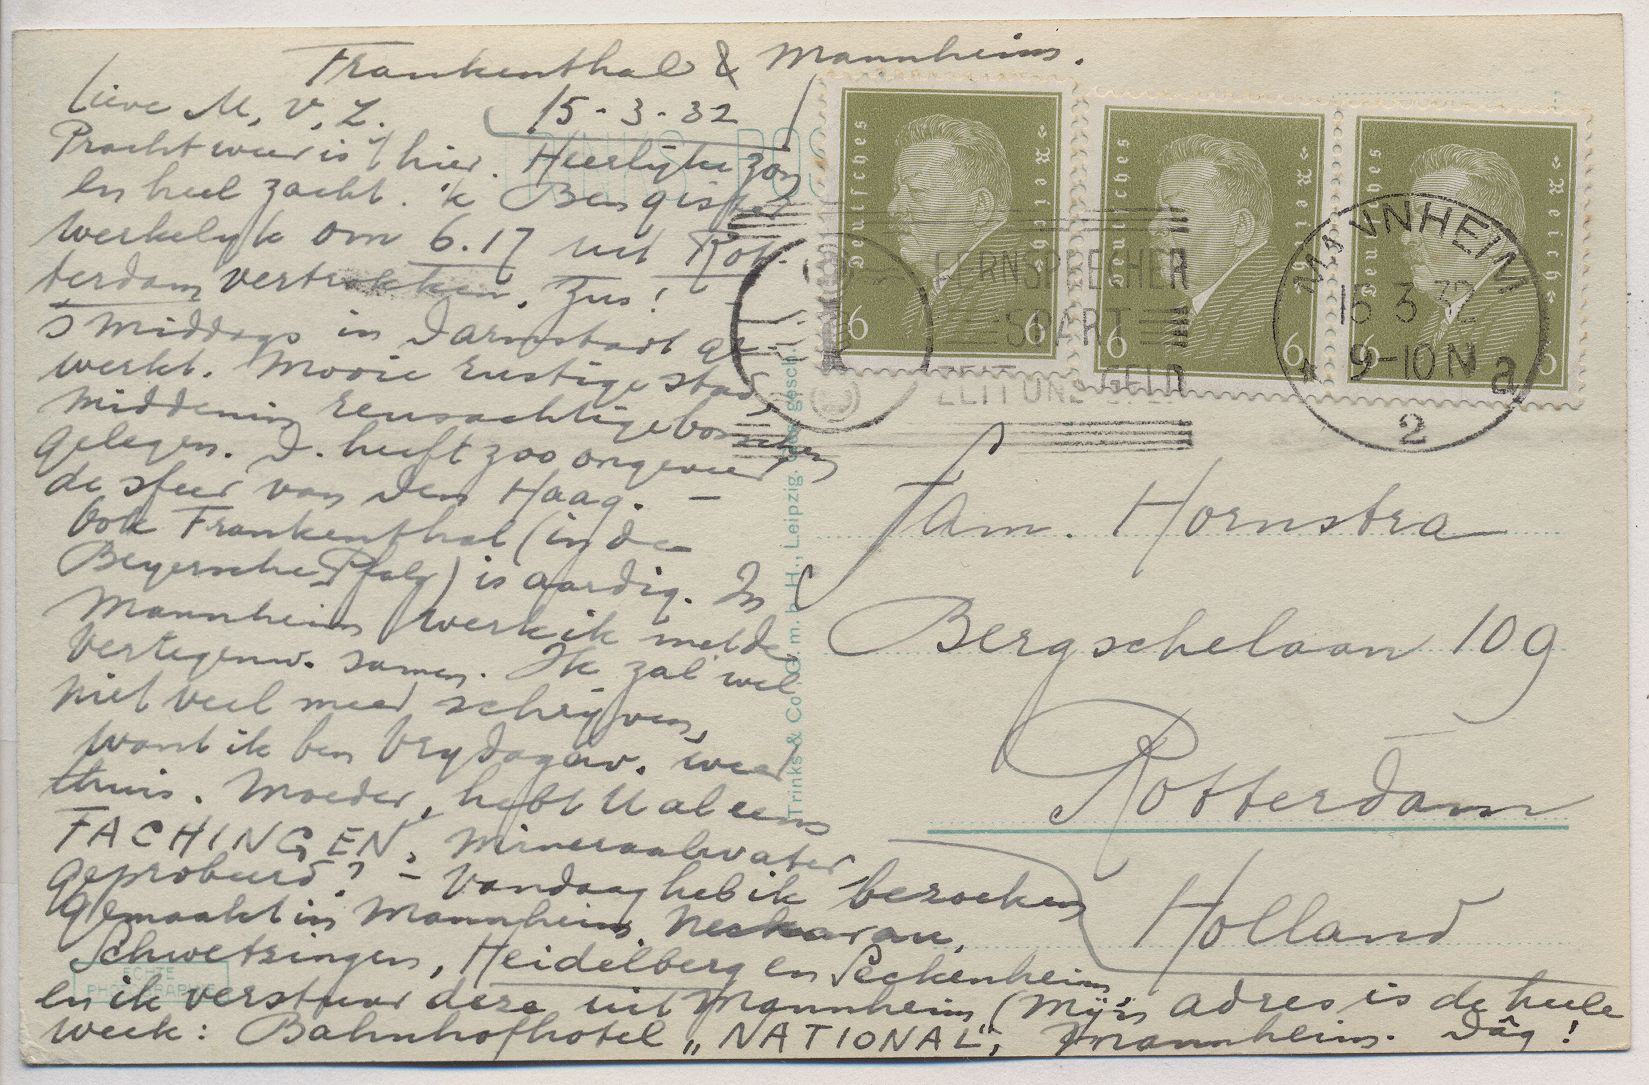 Frankenthal & Mannheim.
15-3-32
Lieve M, V, Z.
Prachtweer is 't hier. Heerlijke zon
en heel zacht. 'k Ben gister
werkelijk om 6.17 uit Rot-
terdam vertrokken. Zus!
's middags in Darmstadt ge-
werkt. Mooie rustige stad,
midden in reusachtige bosschen
gelegen. D. heeft zoo ongeveer
de sfeer van Den Haag. –
Ook Frankenthal (in de
Beyersche Pfalz) is aardig. In
Mannheim werk ik met de
vertegenw. samen. Ik zal wel
niet veel meer schrijven,
want ik ben Vrijdagav. weer
thuis. Moeder, hebt U al eens
FACHINGEN, mineraalwater
geprobeerd? – Vandaag heb ik bezoeken
gemaakt in Mannheim, Neckarau,
Schwetzingen, Heidelberg en Seckenheim
en ik verstuur deze uit Mannheim (Mijn adres is de heele
week: Bahnhofhotel „NATIONAL", Mannheim. Dâg!
Deutsches Reich
6 6
Deutsches Reich
6 6
Deutsches Reich
6 6
FERNSPRECHER
SPART
ZEIT UND GELD
MANNHEIM
15 3 32
9-10 N
* 2 a
Fam. Hornstra
Bergschelaan 109
Rotterdam
Holland
Trinks & Co. G.m.b.H., Leipzig.
ECHTE
PHOTOGRAPHIE